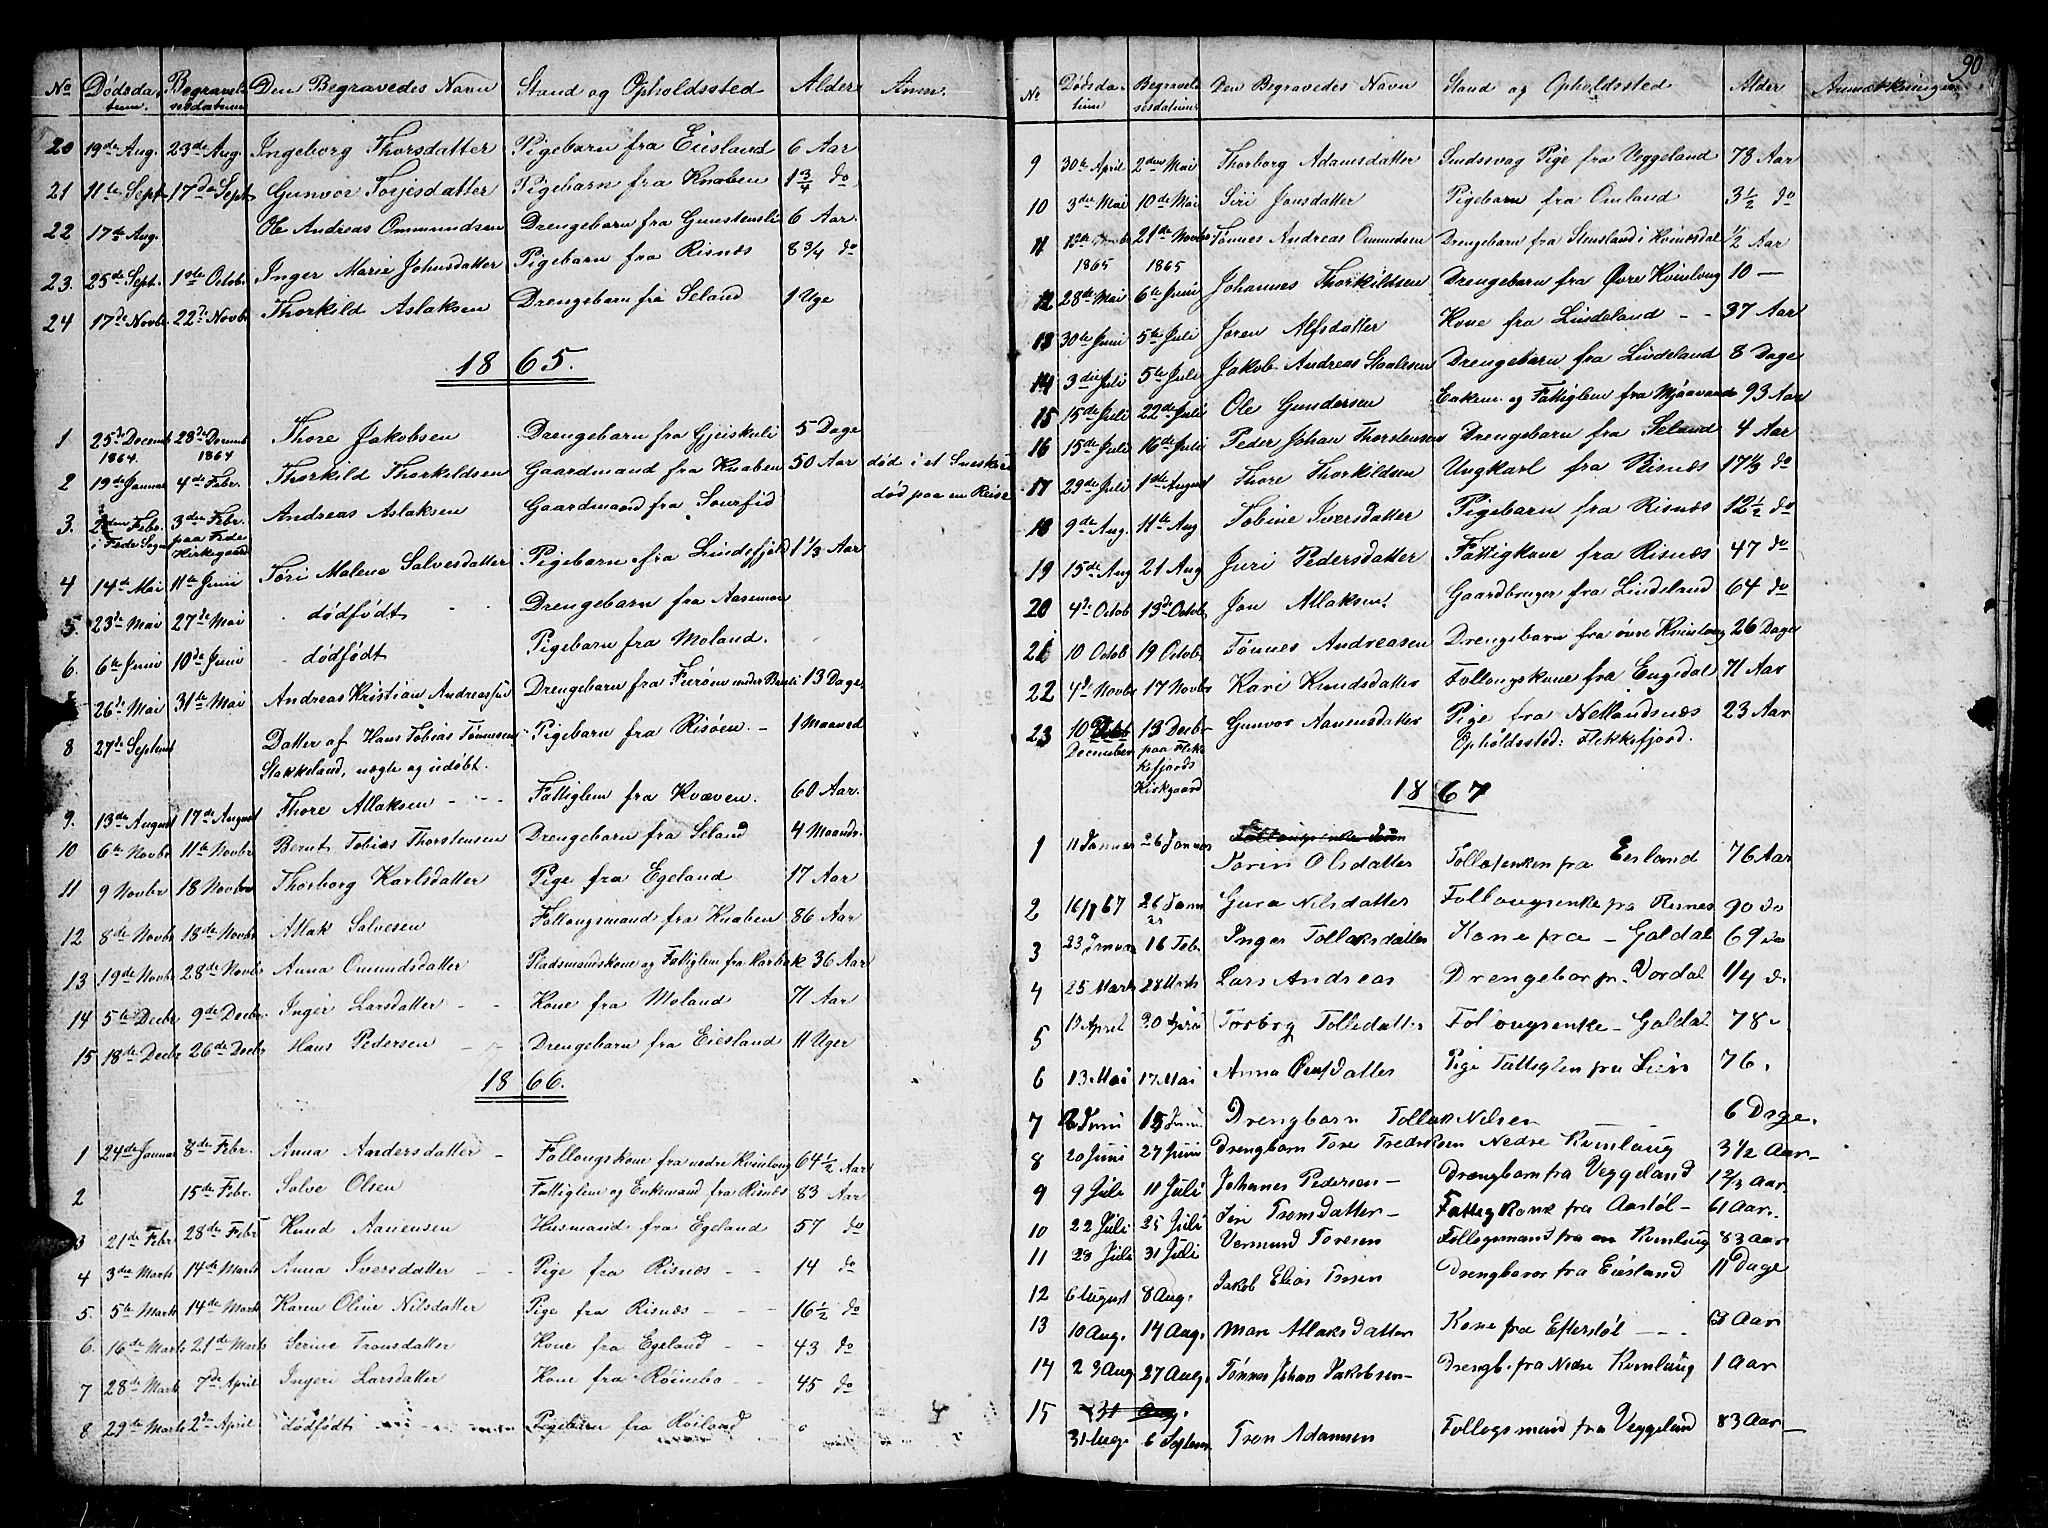 No Dødsdatum. Begravelsesdatum Den Begravedes Navn Stand og Opholdssted Alder Anm.
20 19de Aug. 23de Aug. Ingeborg Thorsdatter Pigebarn fra Eiesland 6 Aar
21 11te Sept. 17de Sept. Gunvor Torjesdatter Pigebarn fra Knaben 1 3/4 do
22 17de Aug. Ole Andreas Ommundsen Drengebarn fra 6 Aar.
23. 25de Sept. 1ste Octob. Inger Marie Johnsdatter Pigebarn fra Risnæs 8 3/4 do
24 17de Novbr 22de Novbr Thorkild Aslaksen Drengebarn fra Seland 1 Uge
1865.
1 25de Decemb 1864. 28de Decemb 1864 Thore Jakobsen Drengebarn fra Gjeiskeli 5 Dage
2 19de Januar 4de Febr. Thorkild Thorkildsen Gaardmand fra Knaben 50 Aar død i et Sneskred
3. 2den Febr. i Fede Sogn 3die Febr. paa Fede Kirkegaard Andreas Aslaksen Gaardmand fra død paa en Reise
4 14de Mai 11te Juni Tori Malene Salvesdatter Pigebarn fra Lindefjeld 1 1/3 Aar
5. 23de Mai 27de Mai dødfødt Drengebarn fra Aasemoe
6. 6te Juni 10de Juni dødfødt Pigebarn fra Moland.
26de Mai 31te Mai Andreas Kristian Andreassen Drengebarn fra under 13 Dage.
8 27de Septemb Datter af Hans Tobias Tønnesen Pigebarn fra Risøen 1 Maaned
Stakkeland, uægte og udøbt.
9. 13de August 17de August Thore Atlaksen Fattiglem fra Kvæven. 60 Aar.
10 6te Novbr 11te Novbr Bernt Tobias Thorstensen Drengebarn fra Seland 4 Maaneds.
11 9 Novbr 18 Novbr Thorborg Karlsdatter Pige fra Egeland 17 Aar
12 8de Novbr 18de Novbr Atlak Salvesen Follougsmand fra Knaben 86 Aar
13 19de Novbr 28de Novbr Anna Omundsdatter Pladsmandskone og Fattiglem fra 36 Aar
14 5te Decbr 9de Decbr. Inger Larsdatter Kone fra Moland 71 Aar
15 18de Decbr 26de Decbr Hans Pedersen Drengebarn fra Eiesland 11 Uger
1866.
1 24de Januar 8de Febr. Anna Aandersdatter Follougskone fra nedre Kvinloug 64 1/2 Aar
2 15de Febr. Salve Olsen Fattiglem og Enkemand fra Risnæs 83 Aar
3 21de Febr 28de Febr Knud Aanensen Husmand fra Egeland 57 do
4 3de Marts 14de Marts Anna Iversdatter Pige fra Risnæs 14 do
5. 5te Marts 14de Marts Karen Oline Nilsdatter Pige fra Risnæs 16 1/2 do
6. 16de Marts 21de Marts Serine Tronsdatter Kone fra Egeland 43 do
7 28de Marts 7de April Ingeri Larsdatter Kone fra Røinebo 45 do
8 29de Marts 2de April dødfødt Pigebarn fra Røiland
90
No Dødsdatum Begravelsesdatum Den Begravedes Navn Stand og Opholdssted Alder Anmærkninger
9 30te April 2den Mai Thorborg Adamsdatter Sindssvag Pige fra Veggeland 78 Aar
10 3die Mai 10de Mai Siri Jonsdatter Pigebarn fra Omland 3 1/2 do
11 12te Novbr 1865 21de Novbr 1865 Tønnes Andreas Omundsen Drengebarn fra Stensland i Kvinesdal 1/2 Aar
12 28de Mai 6te Juni Johannes Thorkildsen Drengebarn fra Øvre Kvinloug 10 —
13 30te Juni 5te Juli Joren Alfsdatter Kone fra Lindeland 37 Aar
14 3die Juli 5te Juli Jakob Andreas Staalesen Drengebarn fra Lindeland 8 Dage
15 15de Juli 22de Juli Ole Gundersen Enkem. og Fattiglem fra Mjaavand 93 Aar
16 15de Juli 16de Juli Peder Johan Thorstensen Drengebarn fra Seland 4 Aar
17 29de Juli 1ste August Thore Thorkildsen Ungkarl fra Risnæs 17 1/3 do
18 9de Aug. 11te Aug Tobine Iversdatter Pigebarn fra Risnæs 12 1/2 do
19 15de Aug 21 Aug Juri Pedersdatter Fattigkone fra Risnæs 47 do
20 4de Octob 13de Octob Jon Atlaksen. Gaardbruger fra Lindeland 64 do
21 10 Octob 19 Octob. Tønnes Andreasen Drengebarn fra øvre Kvinloug 26 Dage
22 4de Novbr 17 Novbr Kari Knudsdatter Follougskone fra Engedal 71 Aar
23 10 December 13 Decbr paa Flekkefjords Kirkgaard Gunvor Aanensdatter Pige fra Netlandsnæs 23 Aar
Opholdssted: Flekkefjord.
1867
1 11 Januar 26 Januar Torin Olsdatter fra Eisland 76 Aar
2 16/1 67 26 Janu Gura Nilsdatter Follougsenke fra Risnes 90 do
3 23 Januar 16 Feb. Inger Tollaksdatter Kone fra Galdal 69 do
4 25 Marts 28 Marts Lars Andreas Drengebar fr. Vordal 1/4 do
5 13 April 20 April Torborg Tollesdatter Follougsenke Galdal 78
6 13 Mai 17 Mai Anna datter Pige Fattiglem fra Lien 76.
7 12 Juni 15 Juni Drengbarn Tollak Nilsen 6 Dage.
8 20 Juni 27 Juni Drengbarn Tore Fredriksen Nedre Kvinloug 3 1/2 Aar
9 9 Juli 11 Juli Johannes Pedersen Drengbarn fra Veggeland 1 2/3 Aar.
10 22 Juli 25 Juli Siri Tronsdatter Fattigkone fra Aastøl 61 Aar.
11 28 Juli 31 Juli Vermund Toresen Follogsmand fra Kvinloug 83 Aar
12 6 August 8 Aug. Jakob Elias Drengbarn fra Eiesland 11 Dage
13 10 Aug. 14 Aug. Mari Atlaksdatter Kone fra Efterstøl Aar
14 23 Aug 27 Aug. Tønnes Johan Jakobsen Drengb. fra Nedre Kvinloug 1 Aar
15 31 Aug. 6 Septem Tron Adamsen Follogsmand fra Veggeland 83 Aar